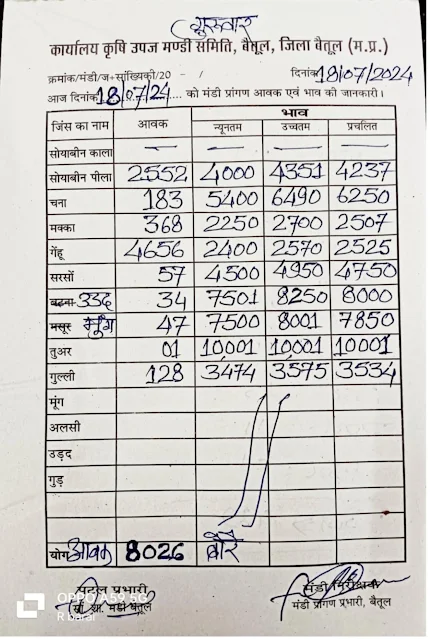 गुरुवार
कार्यालय कृषि उपज मण्डी समिति, बैतूल, जिला बैतूल (म.प्र.)
क्रमांक/मंडी/ज+सांख्यिकी/20 - / दिनांक 18/07/2024
आज दिनांक 18/07/24 को मंडी प्रांगण आवक एवं भाव की जानकारी।
जिंस का नाम आवक भाव
न्यूनतम उच्चतम प्रचलित
सोयाबीन काला — — — —
सोयाबीन पीला 2552 4000 4351 4237
चना 183 5400 6490 6250
मक्का 368 2250 2700 2507
गेंहू 4656 2400 2570 2525
सरसों 57 4500 4950 4750
बटना उड़द 34 7501 8250 8000
मसूर मूंग 47 7500 8001 7850
तुअर 01 10,001 10,001 10001
गुल्ली 128 3474 3575 3534
मूंग
अलसी
उड़द
गुड़
योग आवक 8026 बोरे
प्रभारी मंडी निरीक्षक
मंडी बैतूल मंडी प्रांगण प्रभारी, बैतूल
OPPO A59 5G
R barai